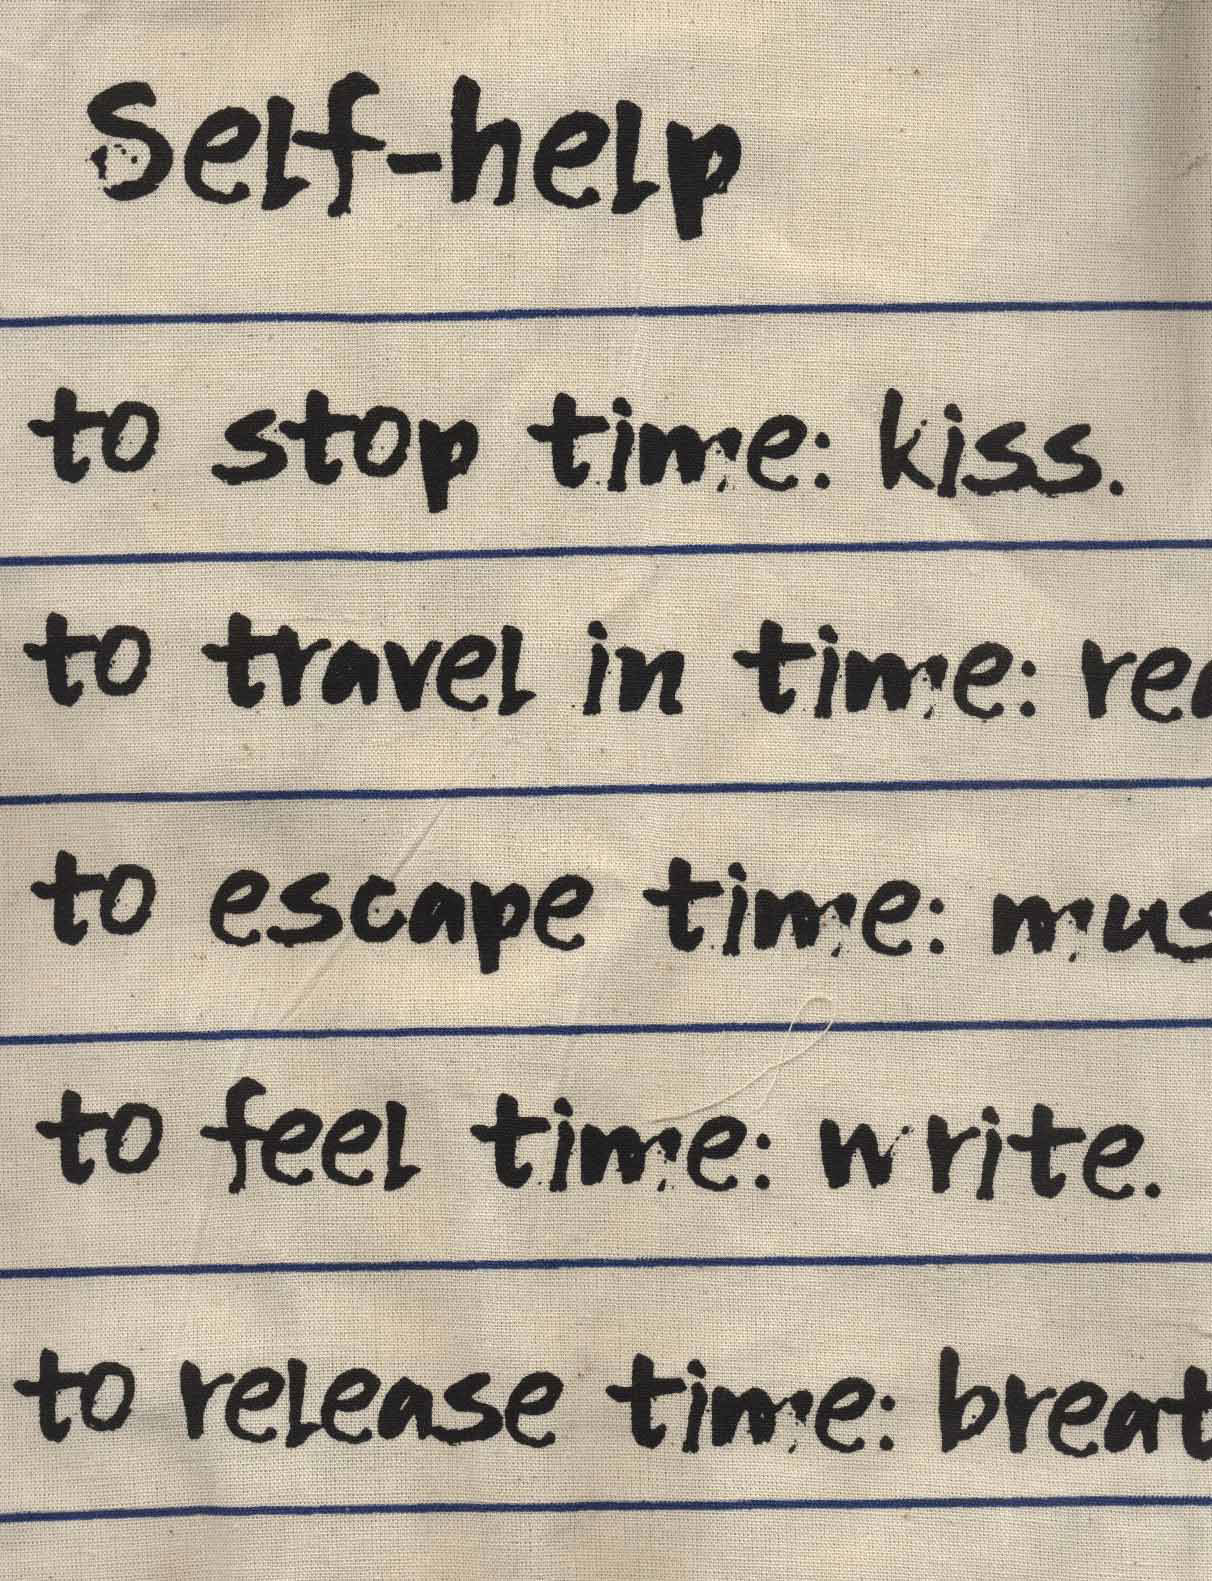 Self-help
to stop time: kiss.
to travel in time: rea
to escape time: mus
to feel time: write.
to release time: breat